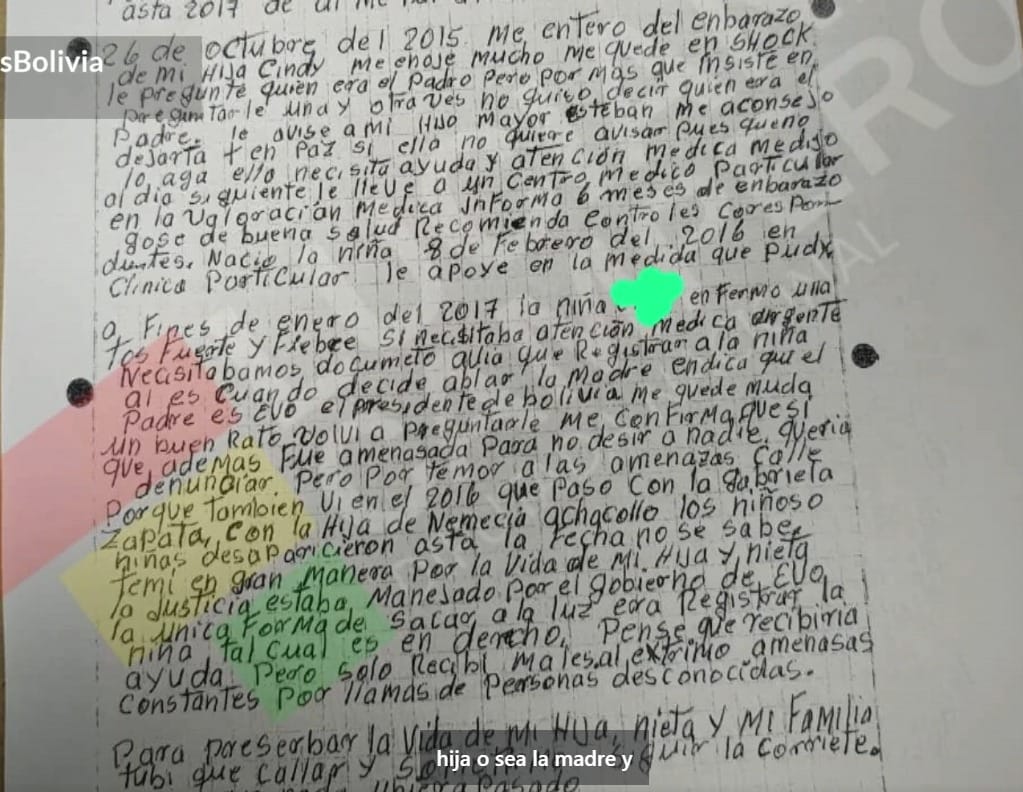 asta 2017 de
26 de octubre del 2015. me entero del enbarazo
sBolivia
de mi Hija Cindy me enoje mucho me quede en SHOCK
le pregunte quien era el Padre Pero por mas que insiste en
preguntarle una y otra ves no quiso decir quien era el
Padre. le avise a mi Hijo mayor esteban me aconsejo
dejarla en Paz si ella no quiere avisar pues que no
lo aga ella necisita ayuda y atención medica medijo
al dia siguiente le lleve a un Centro medico Particular
en la Valoración medica informa 6 meses de enbarazo
gose de buena salud Recomienda controles Corespon-
dientes. Nacio la niña 8 de Febrero del 2016 en
Clinica Particular le apoye en la medida que pude
a Fines de enero del 2017 la niña enfermo una
Tos Fuerte y Fiebre si necisitaba atención medica urgente
Necisitabamos documeto avia que Registrar a la niña
ai es cuando decide ablar la madre endica que el
Padre es Evo el presidente de bolivia me quede muda
un buen Rato, volvi a preguntarle me confirma que si
que, ademas Fue amenasada Para no desir a nadie, queria
denunciar. Pero Por temor a las amenazas Calle
Porque tambien Vi en el 2016 que paso con la Gabriela
Zapata, con la Hija de Nemecia achacollo los niñoso
niñas desaparicieron asta la Fecha no se sabe,
Temi en gran manera Por la Vida de mi Hija y nieta
la Justicia estaba manejado Por el gobierno de EVO,
la unica Forma de sacar a la luz era Registrar la
niña tal cual es en derecho, Pense que recibiria
ayuda Pero solo Recibi males, al extrimo amenasas
constantes Por llamas de Personas desconocidas.
Para preserbar la Vida de mi Hija, nieta y mi Familia
tubi que callar y seguir la corriete.
hija o sea la madre y
ubiera Pasado